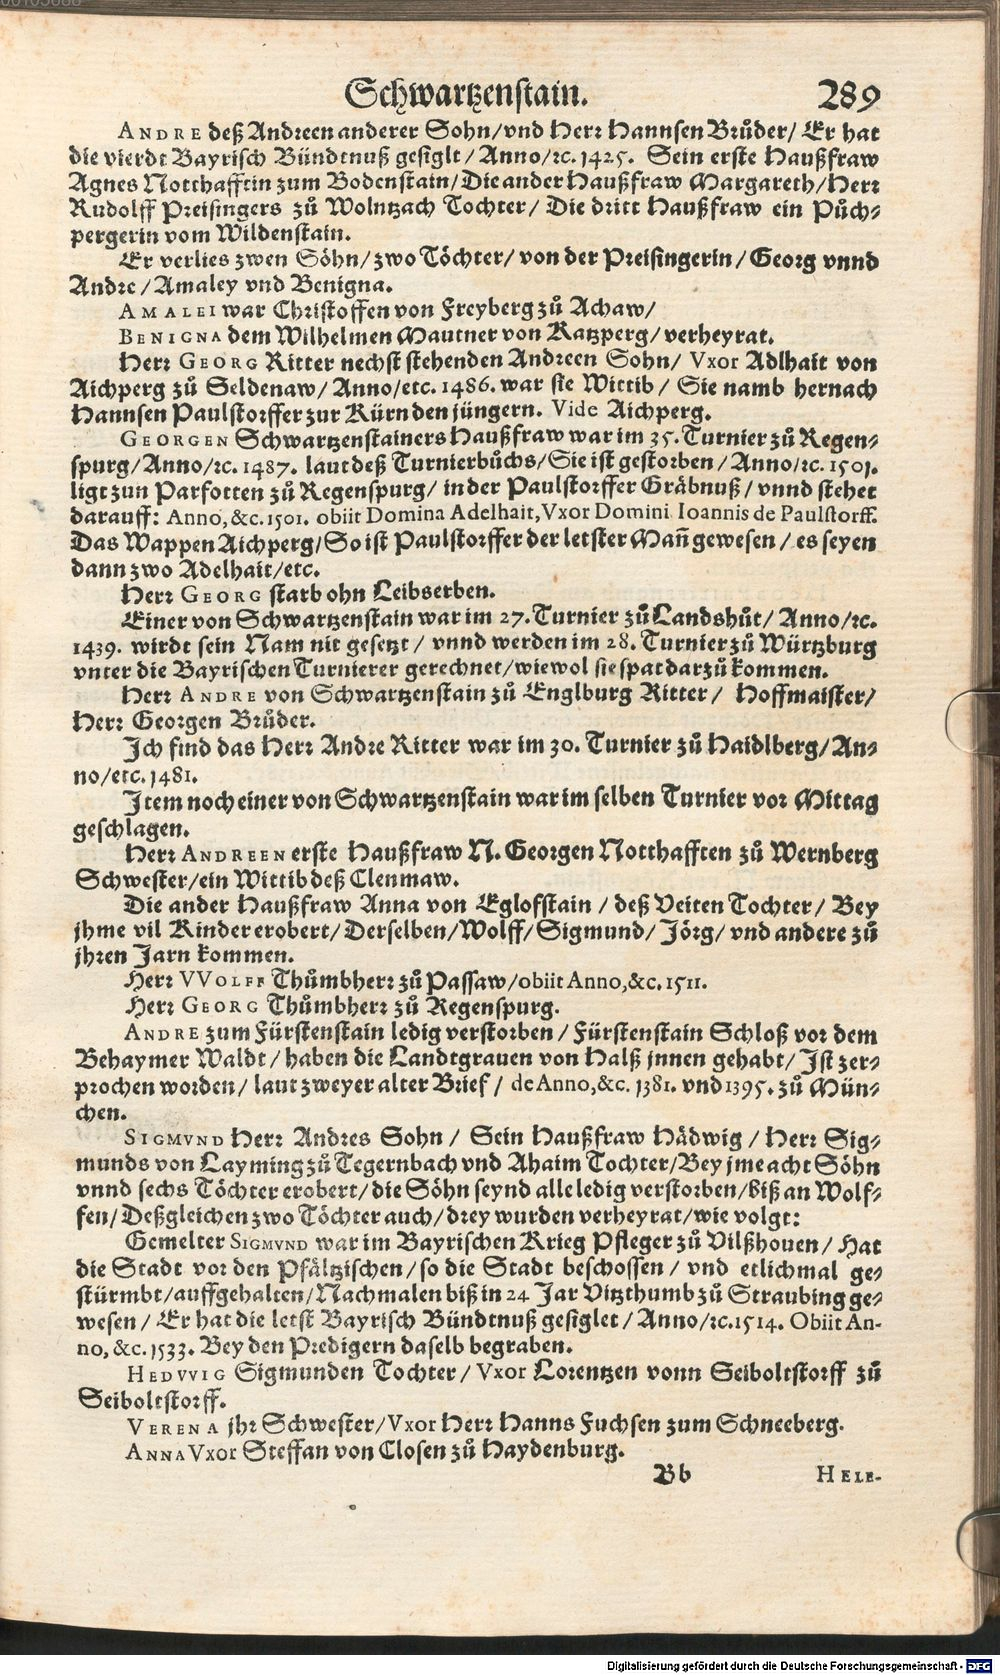 Schwartzenstain. 289
ANDRE deß Andreen anderer Sohn/vnd Herr Hannsen Brůder/ Er hat
die vierdt Bayrisch Bündtnuß gesiglt/Anno/ꝛc. 1425. Sein erste Haußfraw
Agnes Notthafftin zum Bodenstain/Die ander Haußfraw Margareth/Herr
Rudolff Preisingers zů Wolntzach Tochter/ Die dritt Haußfraw ein Půch-
pergerin vom Wildenstain.
Er verlies zwen Söhn/zwo Töchter/von der Preisingerin/Georg vnnd
Andre/Amaley vnd Benigna.
AMALEI war Christoffen von Freyberg zů Achaw/
BENIGNA dem Wilhelmen Mautner von Katzperg/verheyrat.
Herr GEORG Ritter nechst stehenden Andreen Sohn/ Vxor Adlhait von
Aichperg zů Seldenaw/Anno/etc. 1486. war sie Wittib/ Sie namb hernach
Hannsen Paulstorffer zur Kürn den jüngern. Vide Aichperg.
GEORGEN Schwartzenstainers Haußfraw war im 35. Turnier zů Regen-
spurg/Anno/ꝛc. 1487. laut deß Turnierbůchs/Sie ist gestorben/Anno/ꝛc. 1501.
ligt zun Parfotten zů Regenspurg/ in der Paulstorffer Gräbnuß/vnnd stehet
darauff: Anno,&c. 1501. obiit Domina Adelhait, Vxor Domini Ioannis de Paulstorff.
Das Wappen Aichperg/So ist Paulstorffer der letster Mañ gewesen/es seyen
dann zwo Adelhait/etc.
Herr GEORG starb ohn Leibserben.
Einer von Schwartzenstain war im 27. Turnier zů Landshůt/ Anno/ꝛc.
1439. wirdt sein Nam nit gesetzt/ vnnd werden im 28. Turnier zů Würtzburg
vnter die Bayrischen Turnierer gerechnet/wiewol sie spat darzů kommen.
Herr ANDRE von Schwartzenstain zů Englburg Ritter/ Hoffmaister/
Herr Georgen Brůder.
Ich find das Herr Andre Ritter war im 30. Turnier zů Haidlberg/An-
no/etc. 1481.
Item noch einer von Schwartzenstain war im selben Turnier vor Mittag
geschlagen.
Herr ANDREEN erste Haußfraw N. Georgen Notthafften zů Wernberg
Schwester/ein Wittib deß Clenmaw.
Die ander Haußfraw Anna von Eglofstain/deß Veiten Tochter/ Bey
jhme vil Kinder erobert/Derselben/Wolff/Sigmund/Jörg/vnd andere zů
jhren Jarn kommen.
Herr VVOLFF Thůmbherr zů Passaw/obiit Anno,&c. 1511.
Herr GEORG Thůmbherr zů Regenspurg.
ANDRE zum Fürstenstain ledig verstorben/Fürstenstain Schloß vor dem
Behaymer Waldt/haben die Landtgrauen von Halß jnnen gehabt/Ist zer-
prochen worden/laut zweyer alter Brief/ de Anno,&c. 1381. vnd 1395. zů Mün-
chen.
SIGMVND Herr Andres Sohn/ Sein Haußfraw Hädwig/Herr Sig-
munds von Layming zů Tegernbach vnd Ahaim Tochter/Bey jme acht Söhn
vnnd sechs Töchter erobert/die Söhn seynd alle ledig verstorben/biß an Wolf-
fen/Deßgleichen zwo Töchter auch/drey wurden verheyrat/wie volgt:
Gemelter SIGMVND war im Bayrischen Krieg Pfleger zů Vilßhouen/Hat
die Stadt vor den Pfältzischen/so die Stadt beschossen/ vnd etlichmal ge-
stürmbt/auffgehalten/Nachmalen biß in 24 Jar Vitzthumb zů Straubing ge-
wesen/ Er hat die letst Bayrisch Bündtnuß gesiglet/Anno/ꝛc. 1514. Obiit An-
no,&c. 1533. Bey den Predigern daselb begraben.
HEDVVIG Sigmunden Tochter/ Vxor Lorentzen vonn Seiboltstorff zů
Seiboltstorff.
VERENA jhr Schwester/Vxor Herr Hanns Fuchsen zum Schneeberg.
ANNA Vxor Steffan von Closen zů Haydenburg.
Bb HELE-
Digitalisierung gefördert durch die Deutsche Forschungsgemeinschaft - DFG